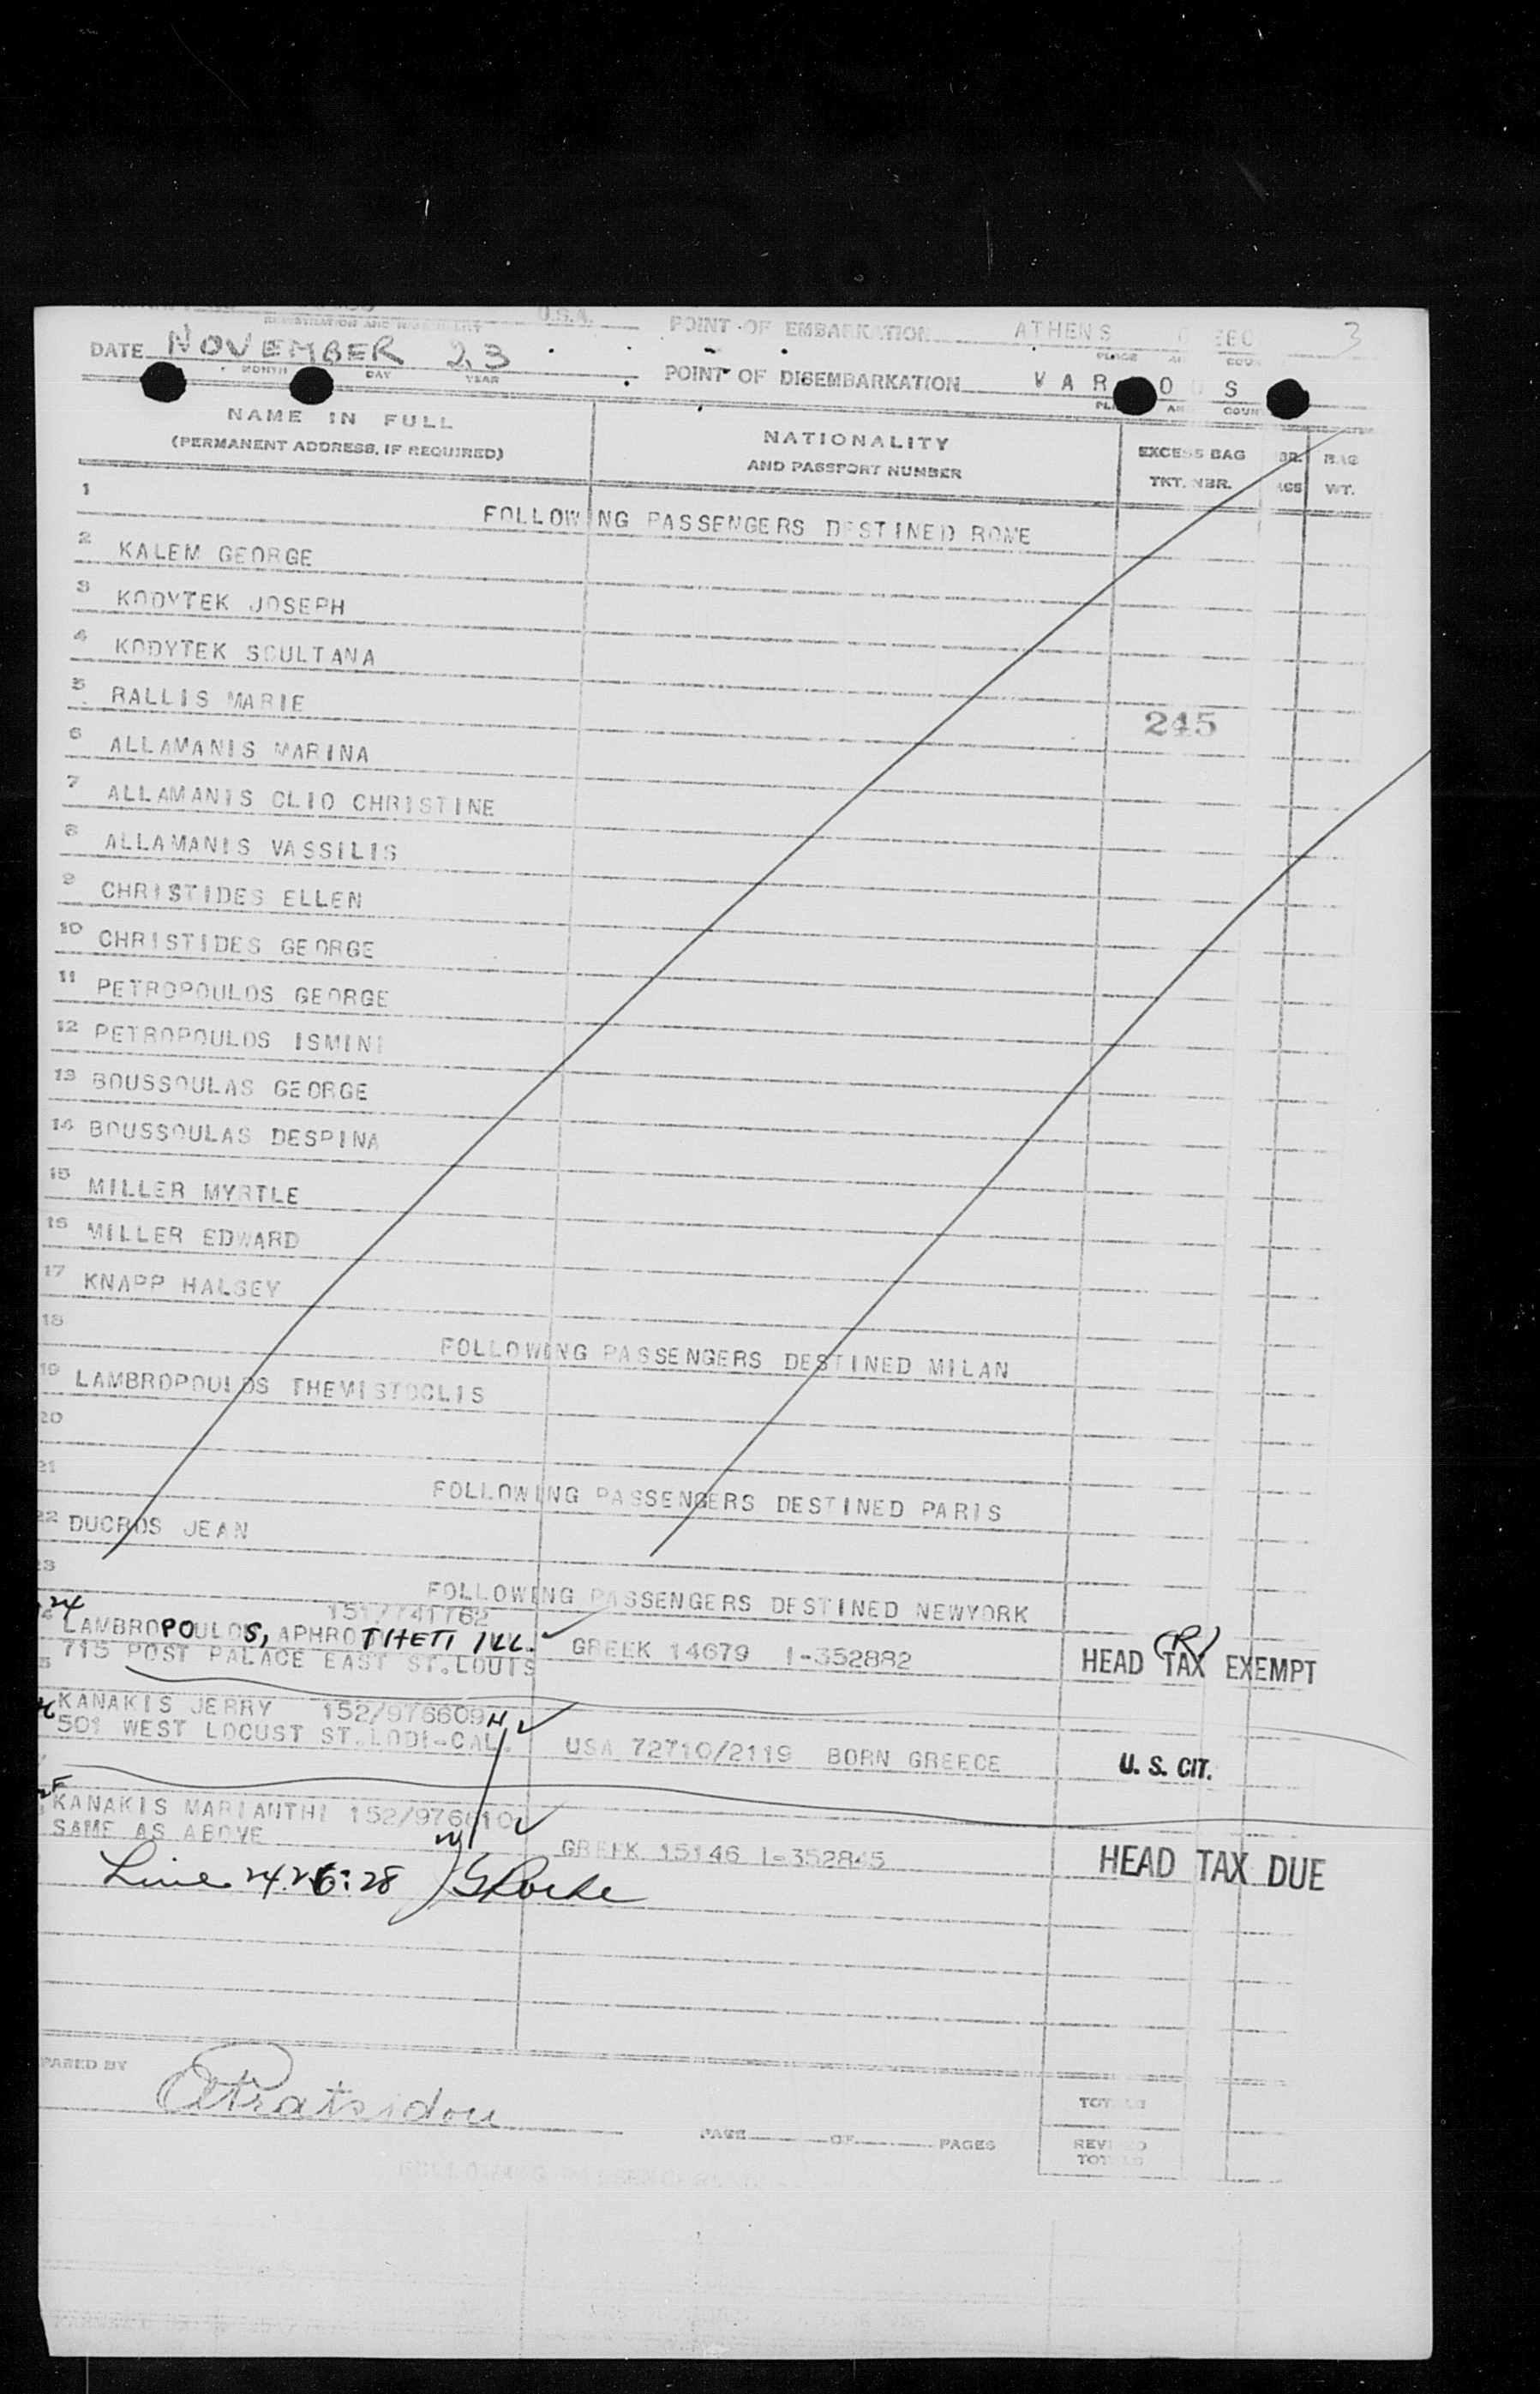 U.S.A. POINT OF EMBARKATION ATHENS 3
DATE NOVEMBER 23
MONTH DAY YEAR
POINT OF DISEMBARKATION V A R O U S
NAME IN FULL
(PERMANENT ADDRESS, IF REQUIRED)
NATIONALITY
AND PASSPORT NUMBER
EXCESS BAG
TKT. NBR.
BAG
WT.
1 FOLLOWING PASSENGERS DESTINED ROME
2 KALEM GEORGE
3 KODYTEK JOSEPH
4 KODYTEK SOULTANA
5 RALLIS MARIE 245
6 ALLAMANIS MARINA
7 ALLAMANIS CLIO CHRISTINE
8 ALLAMANIS VASSILIS
9 CHRISTIDES ELLEN
10 CHRISTIDES GEORGE
11 PETROPOULOS GEORGE
12 PETROPOULOS ISMINI
13 BOUSSOULAS GEORGE
14 BOUSSOULAS DESPINA
15 MILLER MYRTLE
16 MILLER EDWARD
17 KNAPP HALSEY
18 FOLLOWING PASSENGERS DESTINED MILAN
19 LAMBROPOULOS THEMISTOCLIS
20
21 FOLLOWING PASSENGERS DESTINED PARIS
22 DUCROS JEAN
23 FOLLOWING PASSENGERS DESTINED NEWYORK
24 LAMBROPOULOS, APHROTIHETI ILL.
715 POST PALACE EAST ST.LOUIS GREEK 14679 I-352882 HEAD TAX EXEMPT (R)
KANAKIS JERRY 152/976609
501 WEST LOCUST ST.LODI-CAL. USA 72710/2119 BORN GREECE U. S. CIT.
KANAKIS MARIANTHI 152/976610
SAME AS ABOVE GREEK 15146 I-352845 HEAD TAX DUE
Line 24.26:28
PARED BY
PAGE OF PAGES
TOTALS
REVISED
TOTALS